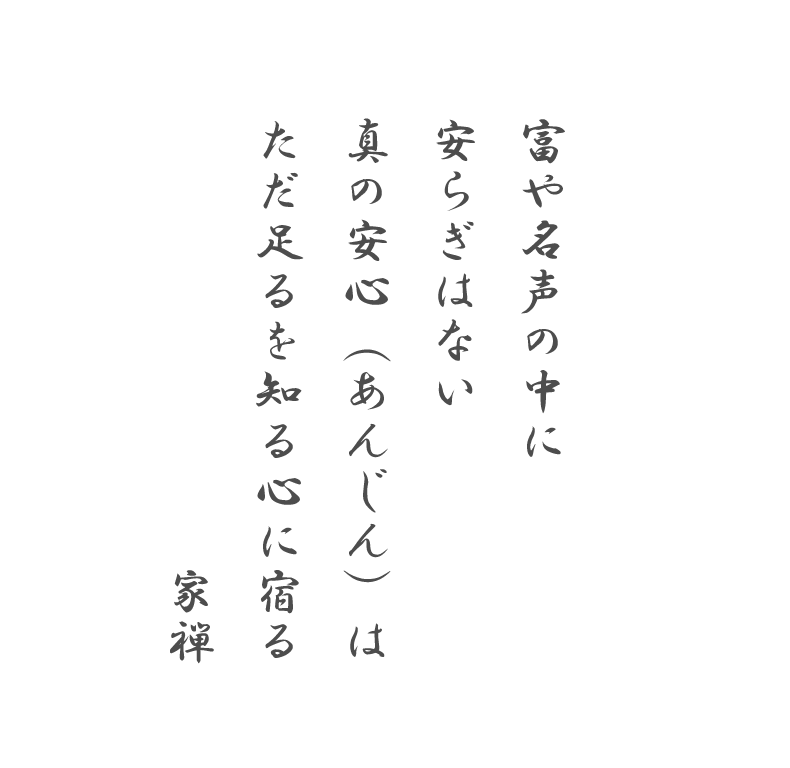 富や名声の中に
安らぎはない
真の安心（あんじん）は
ただ足るを知る心に宿る
家禅